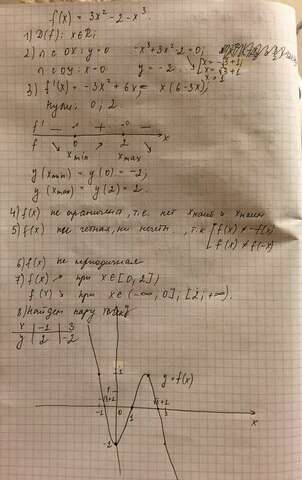 f(x) = 3x² - 2 - x³.
1) D(f): x∈R;
2) ∩ с OX: y=0   -x³+3x²-2=0;
x = -√3+1
x = √3+1
x = 1
∩ с OY: x=0   y=-2.
3) f'(x) = -3x²+6x = x(6-3x);
Нули: 0; 2
f' - 0 + 2 - x
f ↘ xmin ↗ xmax ↘
y(xmin) = y(0) = -2;
y(xmax) = y(2) = 2.
4) f(x) не ограничена, т.е. нет xнаиб и xнаим
5) f(x) не четная, ни нечетн., т.к. [f(x) ≠ -f(x)
[f(x) ≠ f(-x)
6) f(x) не периодическая
7) f(x) ↗ при x∈[0; 2];
f(x) ↘ при x∈(-∞; 0]; [2; +∞).
8) Найдем пару точек
x | -1 | 3
y | 2 | -2
y
y = f(x)
-1 -√3+1 0 1 √3+1 3 x